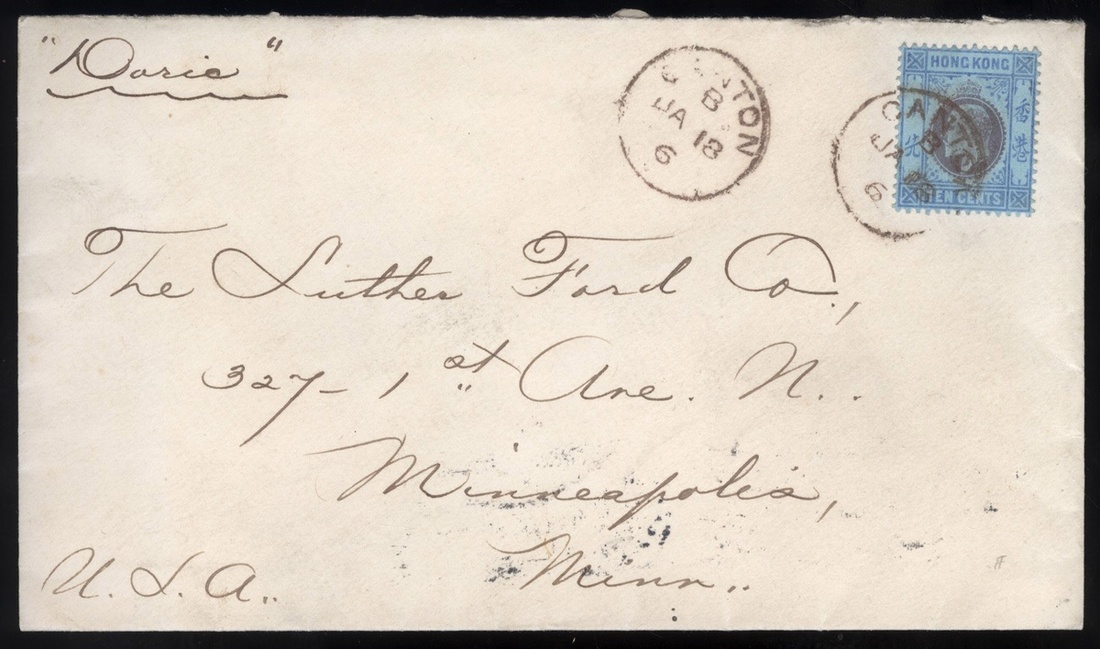 "Doric"
CANTON
B
JA 18
6
HONG KONG
香港
CANTON
B
JA 18
6
TEN CENTS
The Luther Ford Co.,
327-1st Ave. N..
Minneapolis,
Minn..
U.S.A..